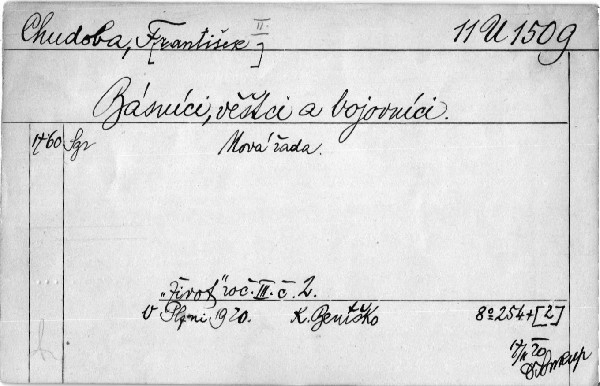 Chudoba, F[rantišek] II. 11 U 1509
Básníci, věštci a bojovníci.
Nová řada.
"Život" roč. III. č. 2.
V Plzni 1920. K. Beníško 8° 254+[2]